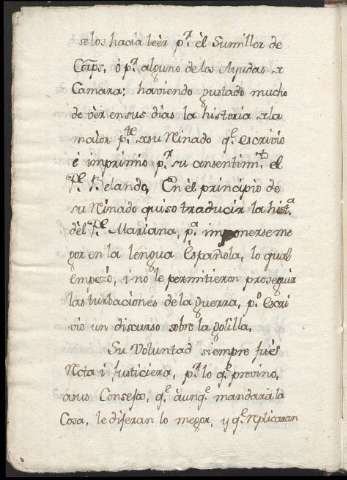 se los hacía leèr pʳ èl Sumillèr de
Corps, ò pʳ alguno de los Ayudas ᴅ
Camara; haviendo gustado mucho
de vèr en sus días la historia ᴅ la
maior pᵗᵉ ᴅ su Reinado qᵉ escrivio
è imprimio pʳ su consentimᵗᵒ el
Pᵉ Belando. En el principio de
su Reinado quiso traducir la histᵃ
dèl Pᵉ Mariana, pʳ imponerse me
gor en la lengua Española, lo qual
empezò, i no le permitieron proseguir
las turbaciones de la guerra, pᵒ escri
viò un discurso sobre la golilla.
Su Voluntad siempre fuè
Recta i Justiciera, pʳ lo qᵉ previno,
a sus Consejos, qᵉ aunqᵉ mandara la
Cosa, le diferan lo megor, y qᵉ replicaran